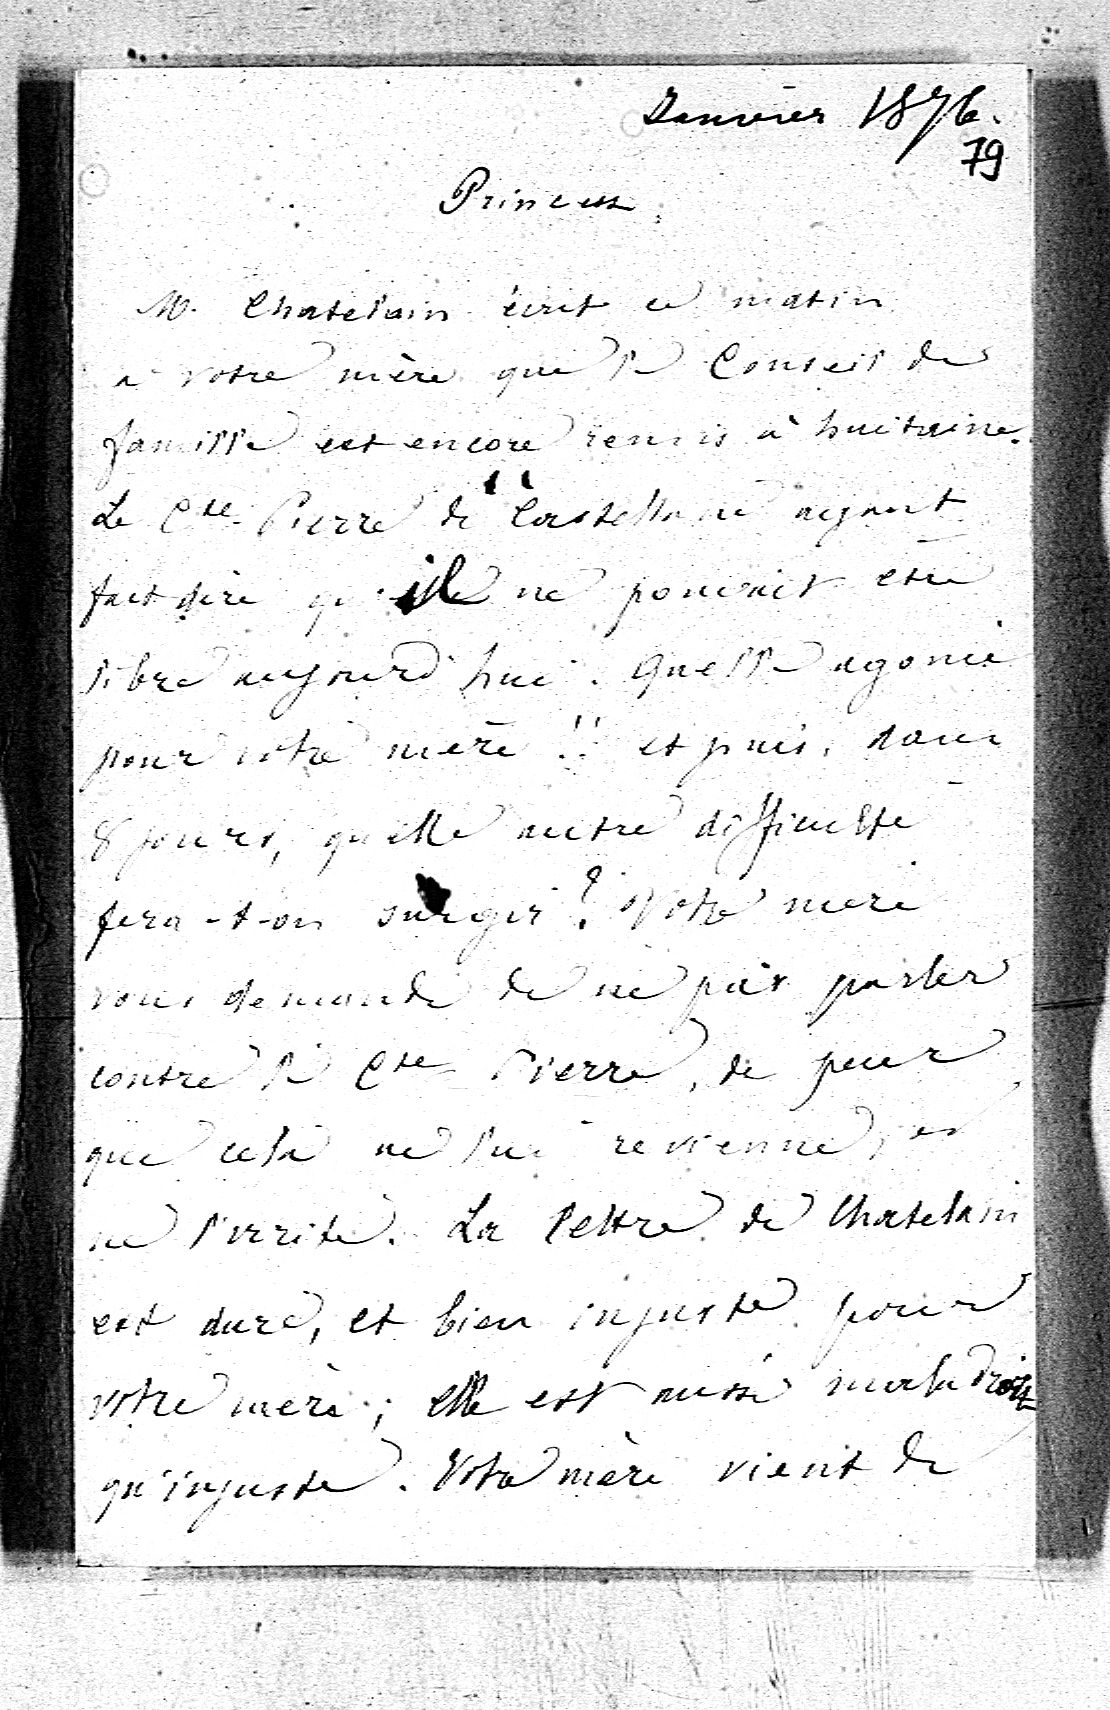 Janvier 1876.
79
Princesse,
M. Chatelain écrit ce matin
a votre mère que le Conseil de
famille est encore remis à huitaine.
Le Cte Pierre de Castellane ayant
fait dire qu'il ne pouvait être
libre aujourd'hui. Quelle agonie
pour votre mère !! et puis, dans
8 jours, quelle autre difficulté
fera-t-on surgir ? Votre mère
vous demande de ne pas parler
contre le Cte Pierre, de peur
que cela ne lui revienne, et
ne l'irrite. La lettre de Chatelain
est dure, et bien injuste pour
votre mère ; elle est aussi maladroite
qu'injuste. Votre mère vient de